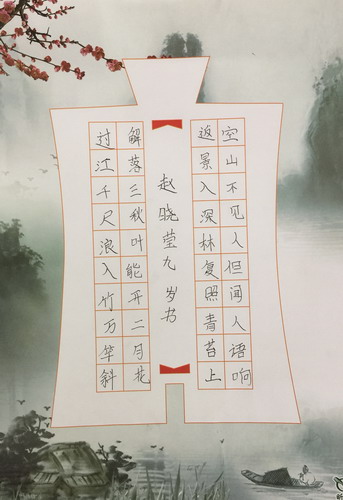 空山不见人但闻人语响
返景入深林复照青苔上
赵晓莹九岁书
解落三秋叶能开二月花
过江千尺浪入竹万竿斜